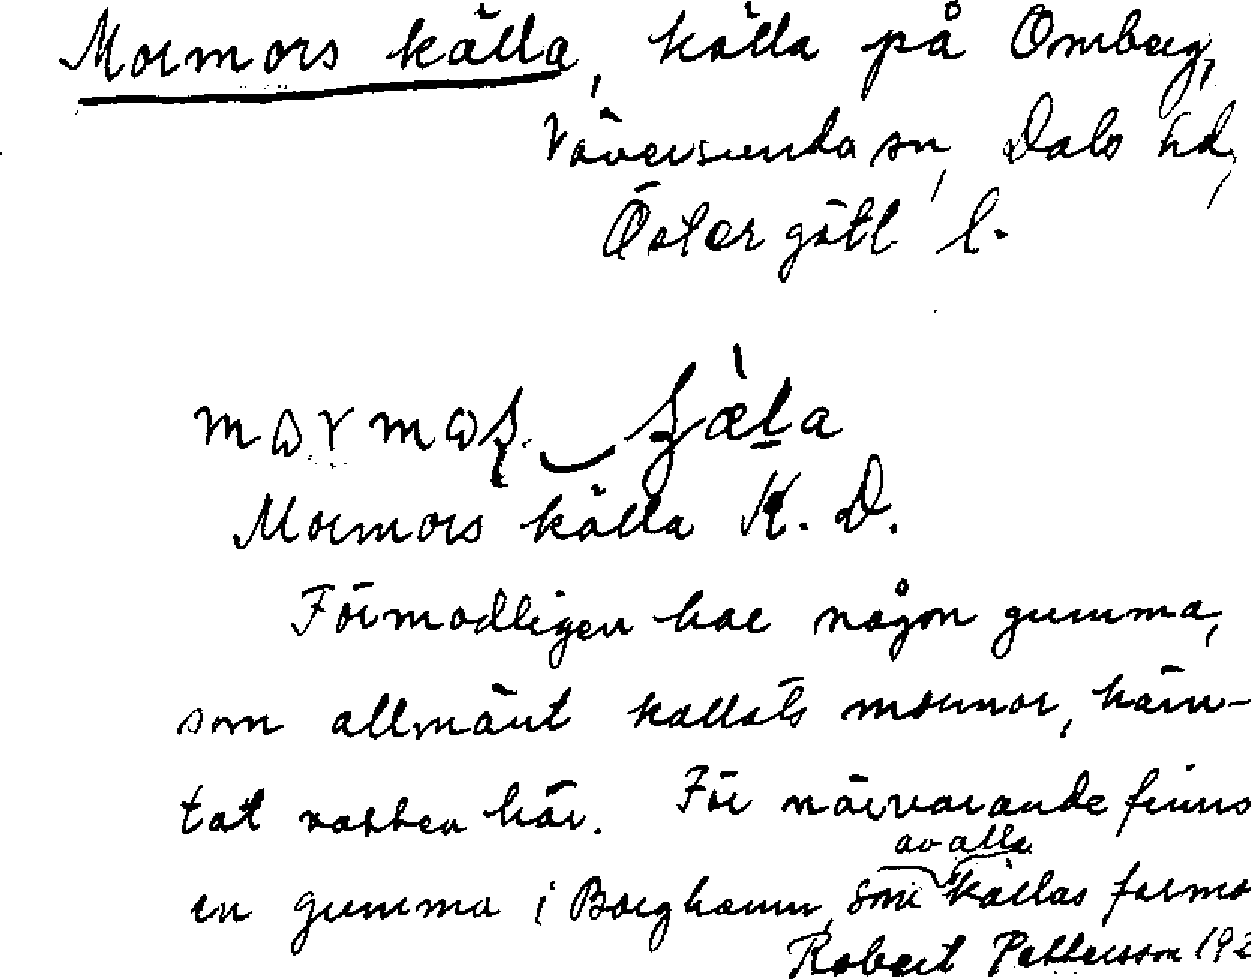 Mormors källa, källa på Omberg,
Väversunda sn, Dals hd,
Östergötl l.
Mormors källa K. D.
Förmodligen har någon gumma,
som allmänt kallats mormor, häm-
tat vatten här. För närvarande finns
av alla
en gumma i Borghamn, som kallas farmo
Robert Pettersson 192